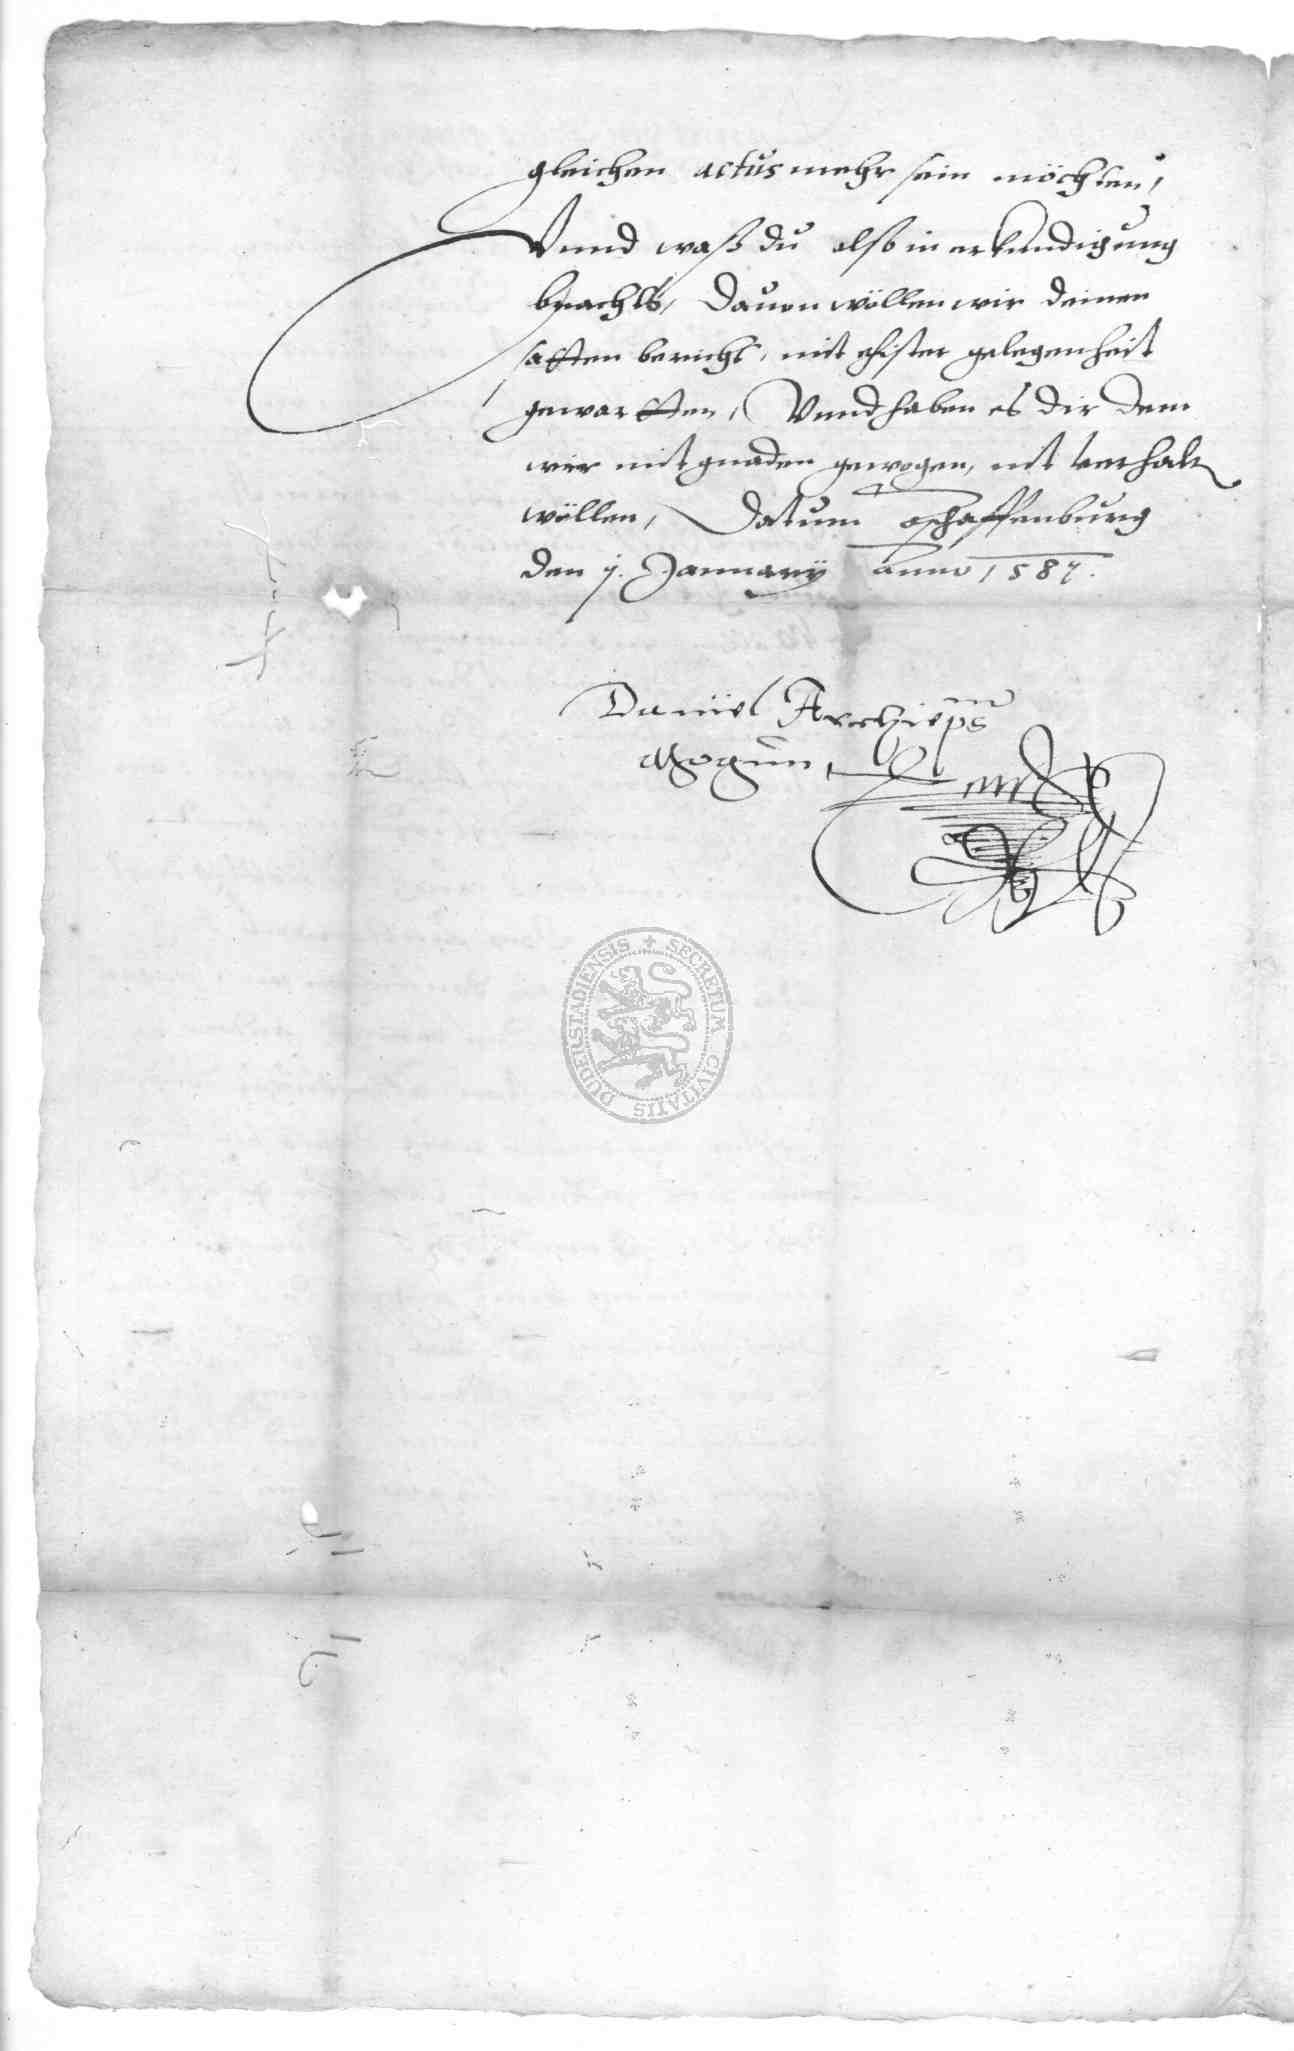 gleichen actus mehr sein möchten,
Vnnd waß du also in erkundigung
Dauon wöllen wir deinen
satten bericht, mit ehister gelegenheit
gewartten, Vnnd haben es dir dem
wir mit gnaden gewogen, nit verhaltn
wöllen, Datum Aschaffenburg
den January anno
Daniel Archieps
Mogun,
SECRETUM CIVITATIS DUDERSTADIENSIS